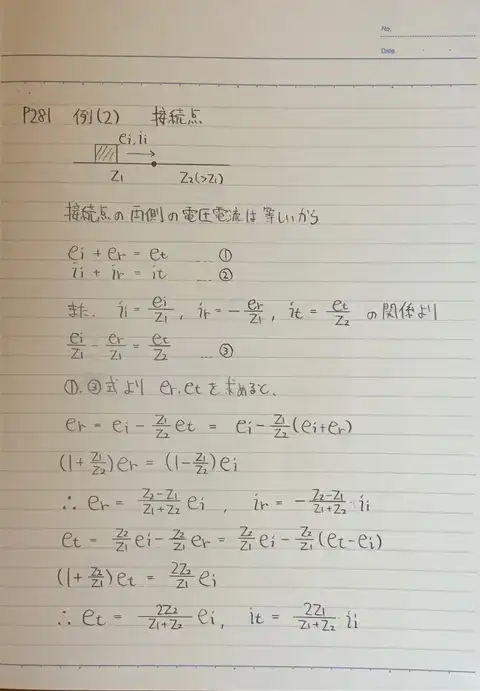 No.
Date
P281 例1(2) 接続点
ei, ii
Z1 Z2(>Z1)
接続点の両側の電圧電流は等しいから
ei + er = et ①
ii + ir = it ②
また、 ii = ei/Z1, ir = -er/Z1, it = et/Z2 の関係より
ei/Z1 - er/Z1 = et/Z2 … ③
①, ③式より er, etを求めると、
er = ei - Z1/Z2 et = ei - Z1/Z2 (ei+er)
(1+Z1/Z2)er = (1-Z1/Z2)ei
∴ er = Z2-Z1/Z1+Z2 ei , ir = -Z2-Z1/Z1+Z2 ii
et = Z2/Z1 ei - Z2/Z1 er = Z2/Z1 ei - Z2/Z1 (et-ei)
(1+Z2/Z1)et = 2Z2/Z1 ei
∴ et = 2Z2/Z1+Z2 ei, it = 2Z1/Z1+Z2 ii